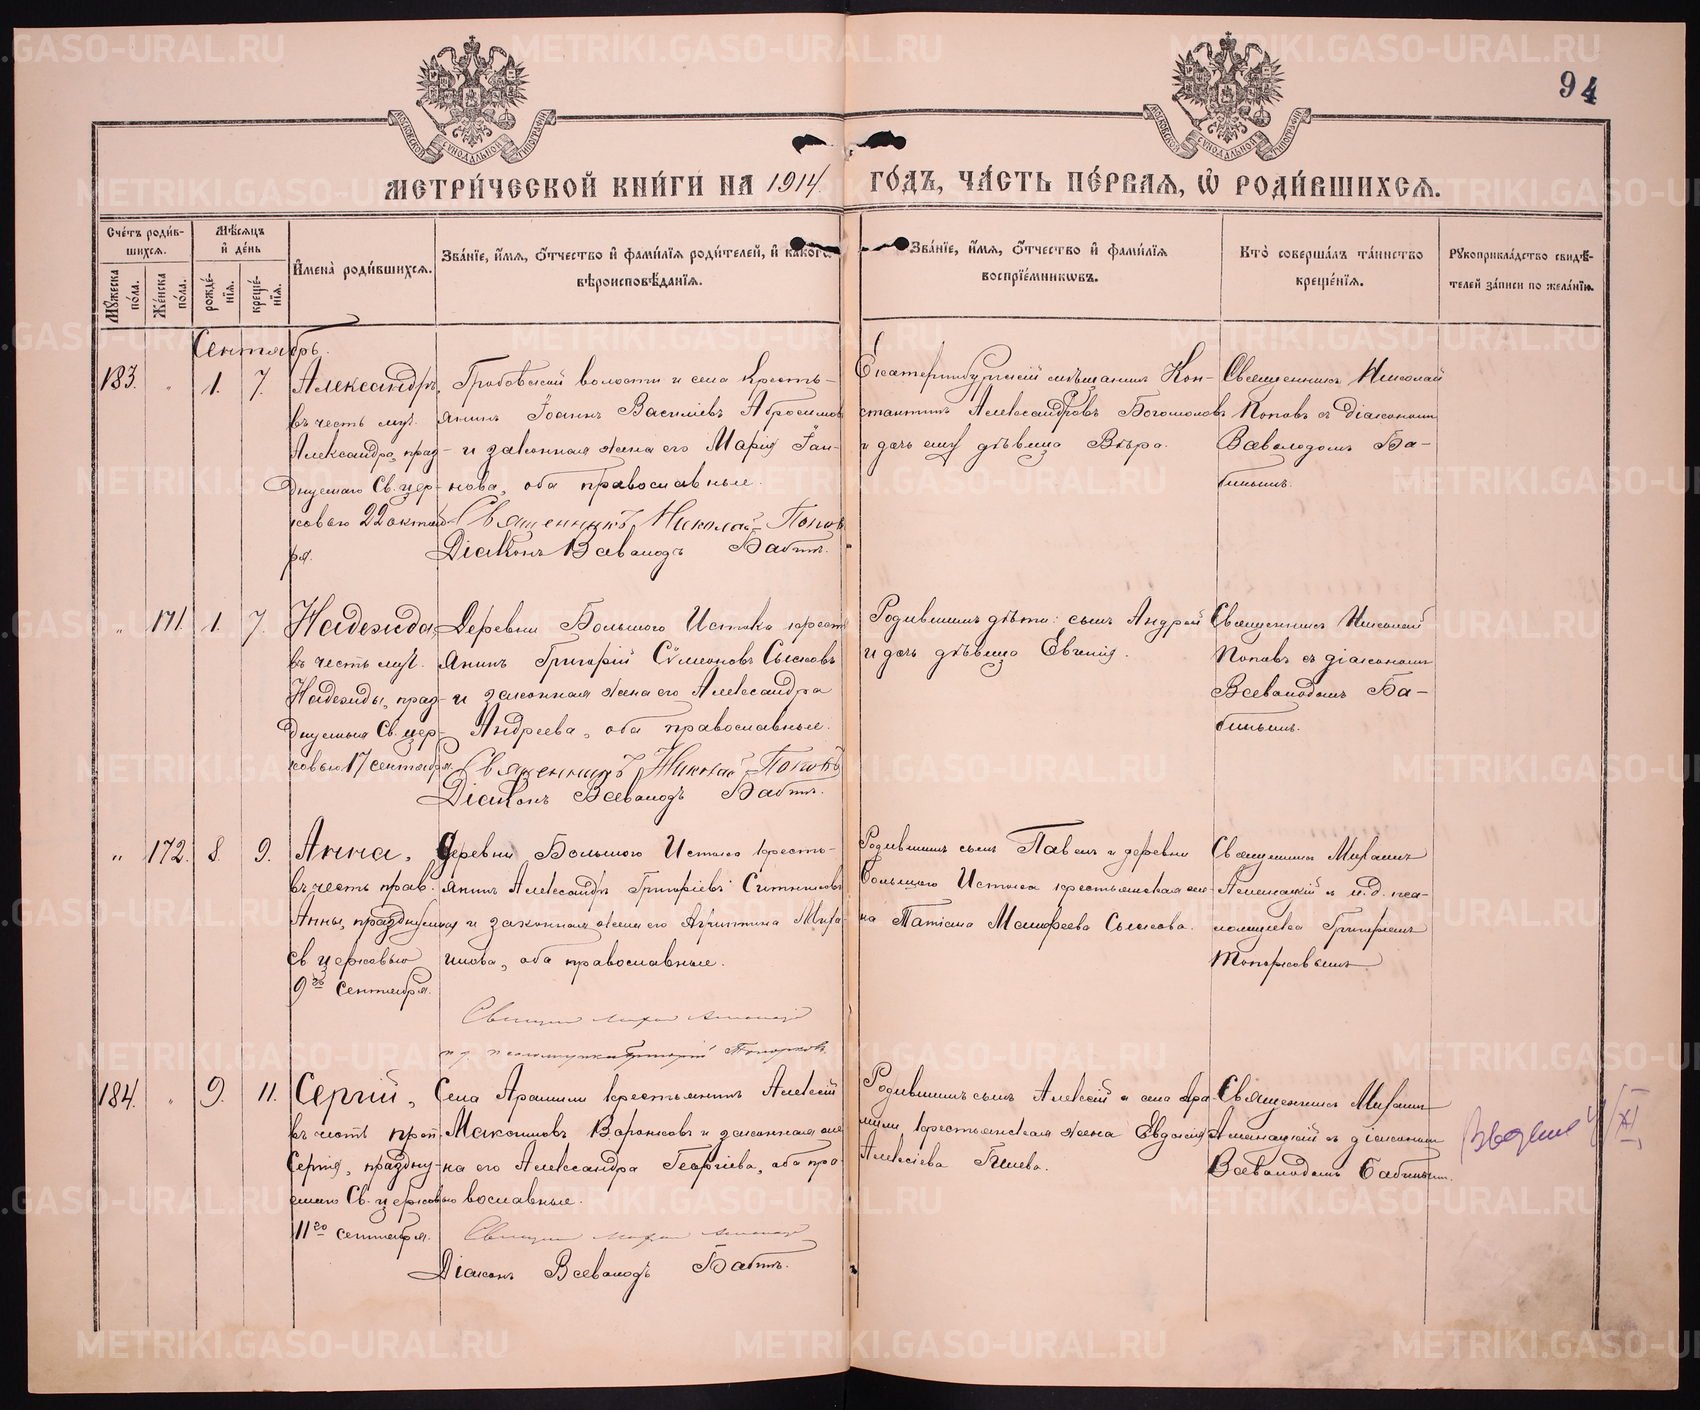 94
МЕТРИ́ЧЕСКОЙ КНИ́ГИ НА 1914 ГО́ДЪ, ЧА́СТЬ ПЕ́РВАЯ, Ѡ҆ РОДИ́ВШИХСЯ.
Сче́тъ роди́вшихся.
Му́жеска по́ла.
Же́нска по́ла.
Мѣ́сяцъ и҆ де́нь
рожде́нїя.
креще́нїя.
И҆мена̀ роди́вшихся.
Зва́нїе, и҆́мя, ѻ҆́тчество и҆ фами́лїя роди́телей, и҆ како́гѡ
вѣроисповѣ́данїя.
Зва́нїе, и҆́мя, ѻ҆́тчество и҆ фами́лїя
воспрїе́мникѡвъ.
Кто̀ соверша́лъ та́инство
креще́нїя.
Рукоприкла́дство свидѣ́-
телей за́писи по жела́нїю.
Сентябрь.
183. " 1. 7.
Александръ,
въ честь муч.
Александра, праз-
днуемаго Св. цер-
ковью 22 октяб-
ря.
Гробовской волости и села кресть-
янинъ Іоаннъ Василіевъ Абросимовъ
и законная жена его Марія Іан-
нова, оба православные.
Священникъ Николай Поповъ
Діаконъ Всеволодъ Бабинъ.
Екатеринбургскій мѣщанинъ Кон-
стантинъ Александровъ Богомоловъ
и дочь ему дѣвица Вѣра.
Священникъ Николай
Поповъ съ діакономъ
Всеволодомъ Ба-
бинымъ.
" 171. 1. 7.
Надежда,
въ честь муч.
Надежды, праз-
днуемыя Св. цер-
ковью 17 сентября
Деревни Большого Истока крест-
янинъ Григорій Сѵмеоновъ Сысковъ
и законная жена его Александра
Андреева, оба православные.
Священникъ Николай Поповъ
Діаконъ Всеволодъ Бабинъ.
Родившихъ дѣти: сынъ Андрей
и дочь дѣвица Евгенія.
Священникъ Николай
Поповъ съ діакономъ
Всеволодомъ Ба-
бинымъ.
" 172. 8. 9.
Анна,
въ честь прав.
Анны, празднуемыя
Св церковью
9го сентября.
Деревни Большого Истока кресть-
янинъ Александръ Григоріевъ Ситниковъ
и законная жена его
оба православные.
Родившихъ сынъ Павелъ и деревни
Большого Истока крестьянская же-
на Татіана
Священникъ Михаилъ
и. д. пса-
ломщика Григоріемъ
Топорковымъ.
184. " 9. 11.
Сергій,
въ честь преп.
Сергія, праздну-
емаго Св. церковью
11го сентября.
Села Арамили крестьянинъ Алексій
Максимовъ Воронковъ и законная же-
на его Александра Георгіева, оба пра-
вославные.
Діаконъ Всеволодъ Бабинъ.
Родившихъ сынъ Алексій и села Ара-
мили крестьянская жена Евдокія
Алексіева
Священникъ Михаилъ
съ діакономъ
Всеволодомъ Бабинымъ.
METRIKI.GASO-URAL.RU